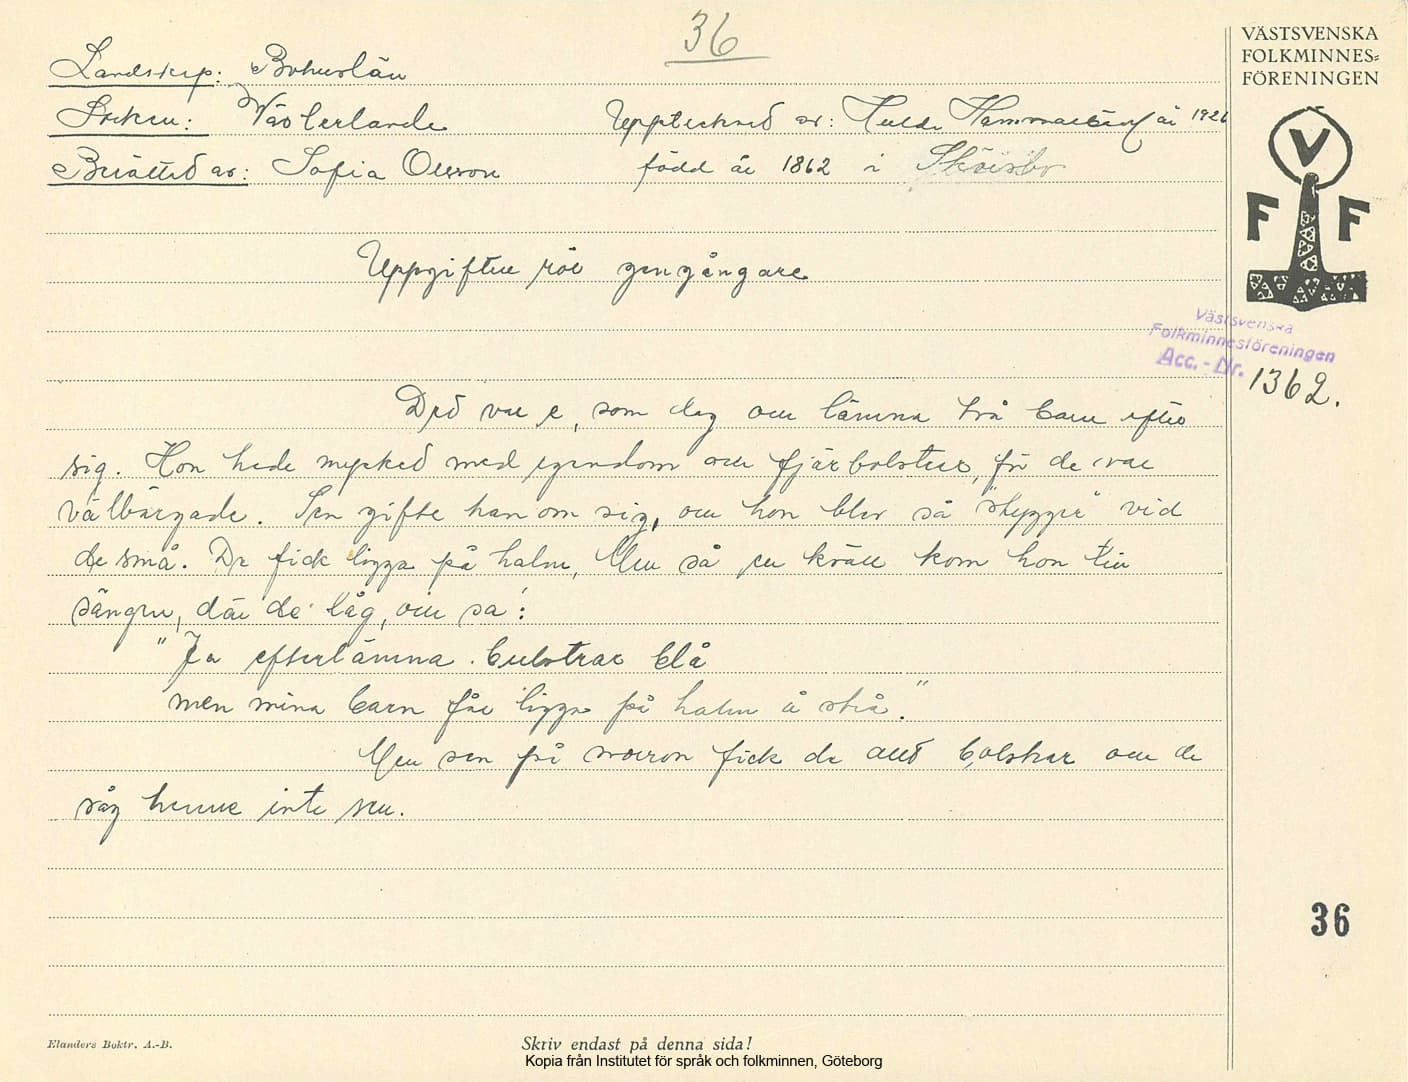 36
VÄSTSVENSKA
FOLKMINNES-
FÖRENINGEN
V
F F
Landskap: Bohuslän
Socken: Västerlanda Upptecknad av: Hulda Hammarbäck år 1926
Berättad av: Sofia Olsson född år 1862 i
Uppgifter rör gengångare
Västsvenska
Folkminnesföreningen
Acc. - Nr. 1362.
Ded var e, som dog och lämna två barn efter
sig. Hon hade mycked med egendom och fjärbolster, för de var
välbärgade. Sen gifte han om sig, och hon blev så "stygger" vid
de små. De fick ligga på halm, Men så en kväll kom hon till
sängen, där de låg, och sa:
"Ja efterlämna bulstrar blå
men mina barn får ligga på halm å strå."
Men sen på morron fick de allt bolstrar och de
såg henne inte mer.
36
Elanders Boktr. A.-B.
Skriv endast på denna sida!
Kopia från Institutet för språk och folkminnen, Göteborg